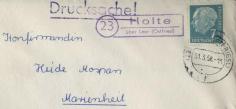 Drucksache!
(23) Holte
über Leer (Ostfriesl)
7
Konfirmanden
31.3.58.-11
Heide Mospan
Marienheil